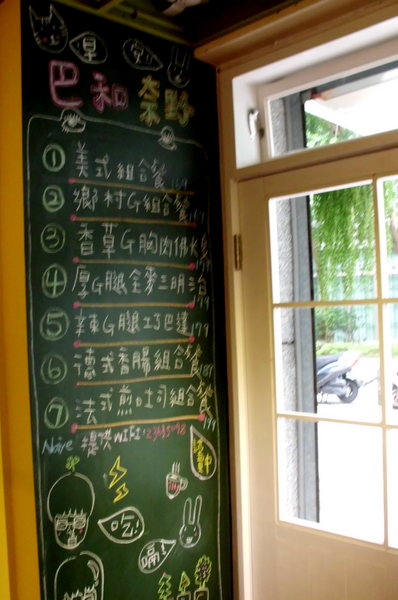 早 安
巴和奈野
① 美式組合餐 169
② 鄉村G組合餐 169
③ 香草G胸肉佛卡 199
④ 厚G腿全麥三明治 199
⑤ 辣G腿巧巴達 179
⑥ 德式香腸組合餐 189
⑦ 法式煎吐司組合餐 199
提供WIFI
吃
嗝